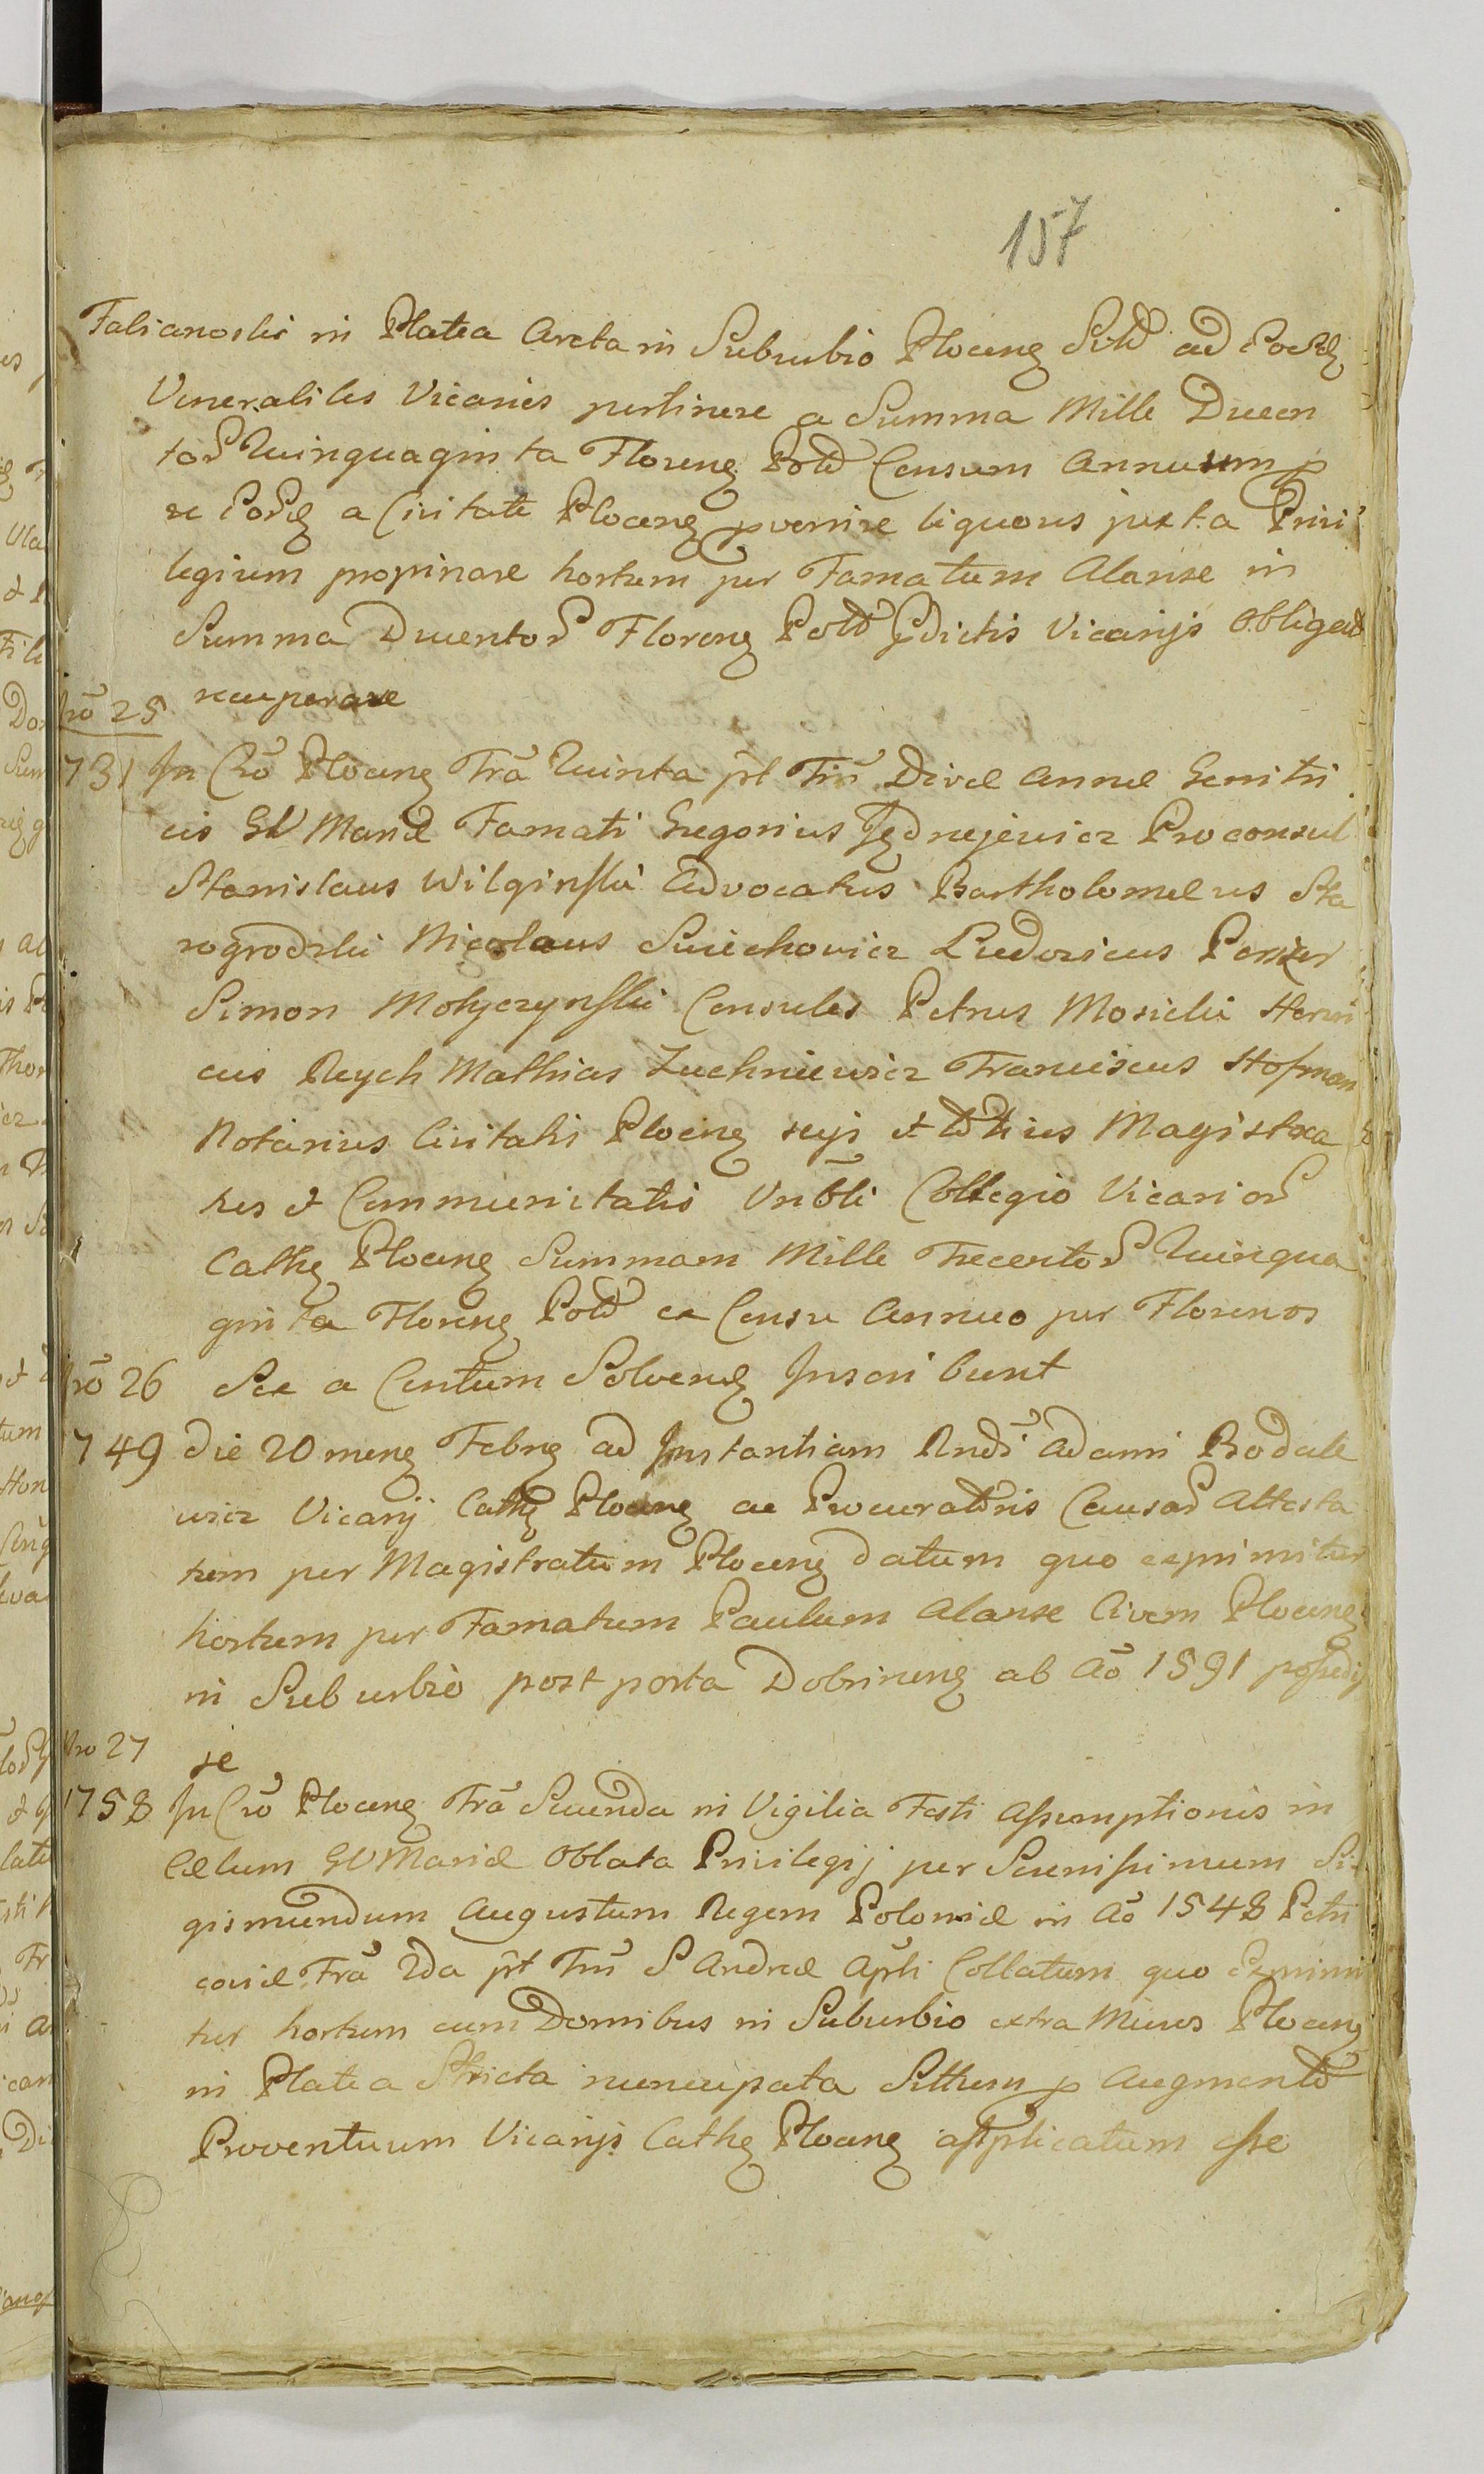 157
Fabianoski in Platea Arcta in Suburbio Plocen Sitt ad eosd
Venerabiles Vicarios pertinere a Summa Mille Ducen
tor Quinquaginta Floren Poll Censum Annuum p
se eosd a Civitate Plocen pvenire liquoris juxta Privi
legium propinare hortum per Famatum Alanse in
Summa Ducentor Floren Poll pdictis Vicarijs Obligat
recuperare
Nrō 25
731 In Crō Plocen Frā Quinta p̄t Fm̄ Divæ Annæ Genitri
cis GV Mariæ Famati Gregorius Jędrzejewicz Proconsul
Stanislaus Wilginski Advocatus Bartholomeus Sta
rogrodzki Nicolaus Suiechowicz Ludovicus
Simon Motyczynski Consules Petrus Mosicki Henri
cus Reych Mathias Zuchniewicz Franciscus Hofman
Notarius Civitatis Plocen suis et totius Magistra
tus et Communitatis Vnb̄li Collegio Vicarior
Cathe Plocen Summam Mille Trecentor Quinqua
ginta Floren Poll ex Censu Annuo per Florenos
Nrō 26 Sex a Centum Solvend Inscribunt
749 die 20 mens Febrg ad Instantiam Rndi Adami Bodale
wicz Vicarij Cathe Plocen ac Procuratoris Causar Attesta
tum per Magistratum Plocen datum quo exprimitur
hortum per Famatum Paulum Alanse Civem Plocen
in Suburbio post porta Dobrinen ab Aō 1591 possedis
se
Nro 27
1758 In Crō Plocen Frā Secunda in Vigilia Festi Assumptionis in
Cælum GV Mariæ Oblata Privilegij per Serenissimum Si
gismundum Augustum Regem Poloniæ in Aō 1548 Petri
coviæ Frā 2da p̄t Fm̄ S Andreæ Ap̄li Collatum quo Exprimi
tur hortum cum Domibus in Suburbio extra Muros Plocen
in Platea Stricta nuncupata Sittum p Augmento
Proventuum Vicarijs Cathe Plocen applicatum esse